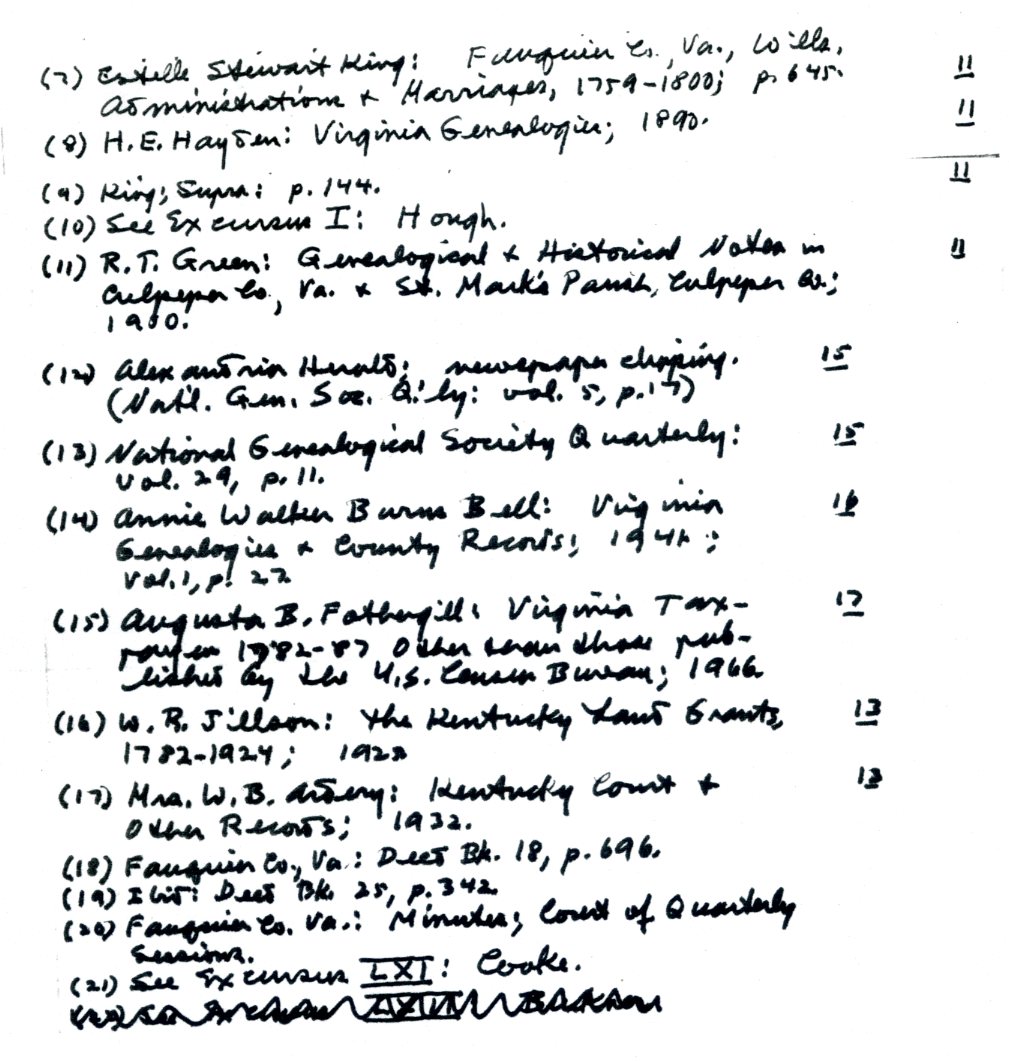 (7) Estelle Stewart King: Fauquier Co., Va., Wills, 11
Administrations & Marriages, 1759-1800; p. 645. 11
(8) H.E. Hayden: Virginia Genealogies; 1890.
(9) King; Supra: p. 144. 11
(10) See Excursus I: Hough.
(11) R.T. Green: Genealogical & Historical Notes in 11
Culpeper Co., Va. & St. Mark's Parish, Culpeper Co.;
1900.
(12) Alexandria Herald; newspaper clipping. 15
(Natl. Gen. Soc. Q'ly: vol. 5, p. 17)
(13) National Genealogical Society Quarterly: 15
Vol. 29, p. 11.
(14) Annie Walker Burns Bell: Virginia 16
Genealogies & County Records; 1941;
Vol. 1, p. 22
(15) Augusta B. Fothergill: Virginia Tax- 17
payers 1782-87 Other than those pub-
lished by the U.S. Census Bureau; 1966
(16) W. R. Jillson: The Kentucky Land Grants, 13
1782-1924;
(17) Mrs. W. B. Ardery: Kentucky Court & 13
Other Records; 1932.
(18) Fauquier Co., Va.: Deed Bk. 18, p. 696.
(19) Ibid: Deed Bk. 25, p. 342
(20) Fauquier Co. Va.: Minutes; Court of Quarterly
Sessions.
(21) See Excursus LXI: Cooke.